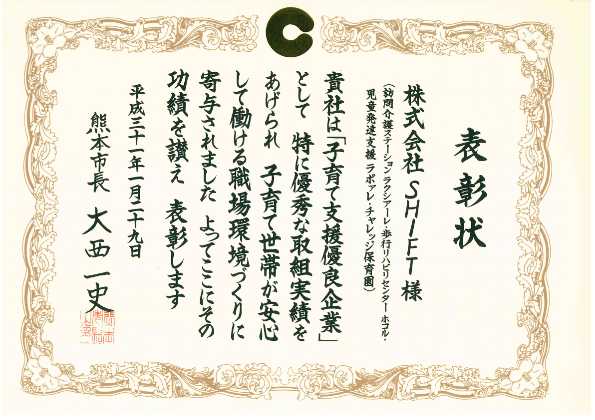 表彰状
株式会社 SHIFT 様
(訪問介護ステーション ラクシアーレ・歩行リハビリセンター ホコル・
児童発達支援 ラポァレ・チャレッジ保育園)
貴社は「子育て支援優良企業」
として 特に優秀な取組実績を
あげられ 子育て世帯が安心
して働ける職場環境づくりに
寄与されました よってここにその
功績を讃え 表彰します
平成三十一年一月二十九日
熊本市長 大西一史